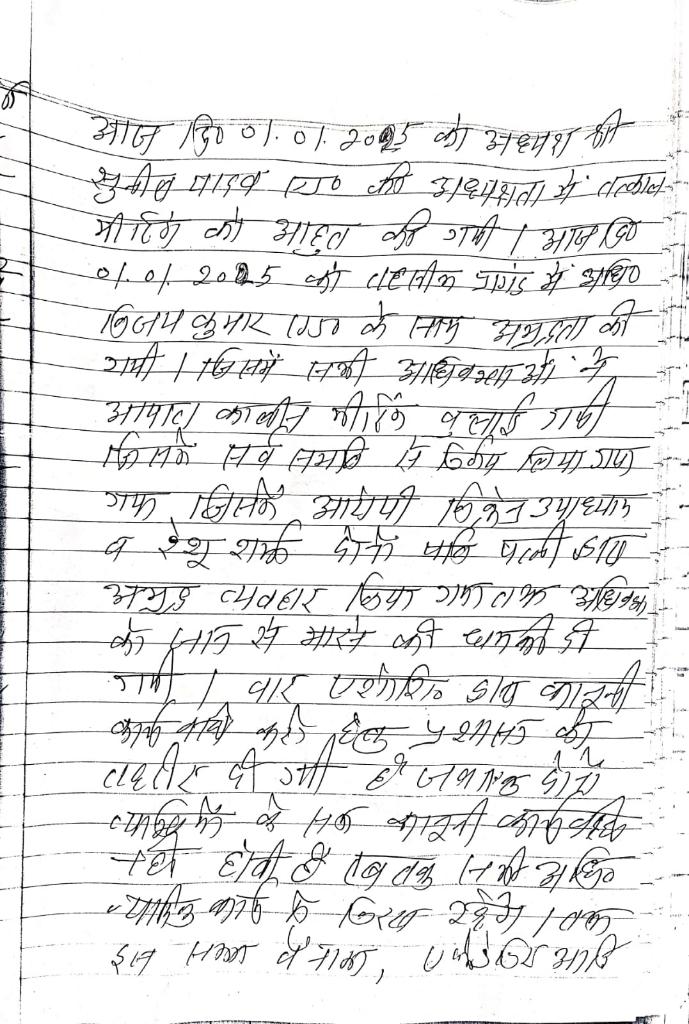 आज दि० 01.01.2025 को अध्यक्ष श्री
सुनील यादव एड० की अध्यक्षता में तत्काल
मीटिंग को आहुत की गयी । आज दि०
01.01.2025 को तहसील प्रागंड में अधि०
विजय कुमार एड० के साथ अभद्रता की
गयी । जिसमें सभी अधिवक्ताओं ने
आपात कालीन मीटिंग बुलाई गयी
जिसमें सर्व समति से निर्णय लिया गया
गया जिसमें आरोपी उपाध्याय
व रेशू शर्मा दोनों पति पत्नी द्वारा
अभद्र व्यवहार किया गया तथा अधिवक्ता
को जान से मारने की धमकी दी
गयी । वार एशोशि० द्वारा कानूनी
कार्यवाही करने हेतु प्रशासन को
तहरीर दी गयी है जबतक दोनों
व्यक्तियों के कानूनी कार्यवाही
नही होती है तब तक सभी अधि०
न्यायिक कार्य से विरत रहेंगे । तथा
इस समय बैनामा, आदि